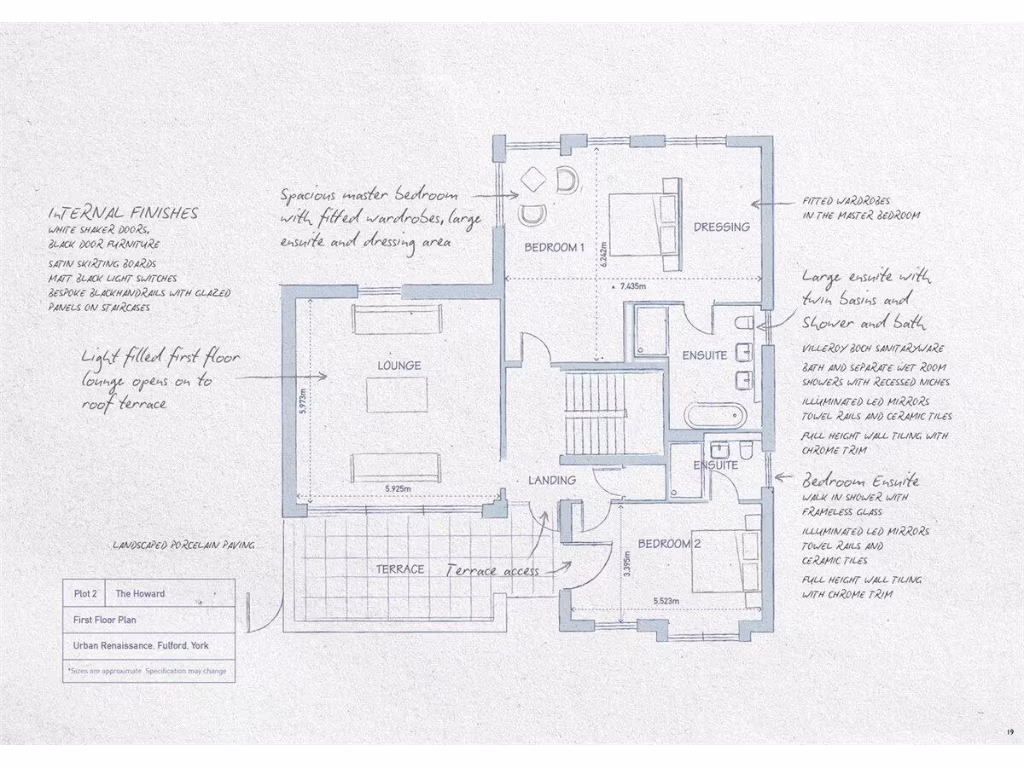 InTERNAL FINISHES
WHITE SHAKER DOORS,
BLACK DOOR FURNITURE
SATIN SKIRTING BOARDS
MATT BLACK LIGHT SWITCHES
BESPOKE BLACKHANDRAILS WITH GLAZED
PANELS ON STAIRCASES
Light filled first floor
lounge opens on to
roof terrace
Spacious master bedroom
with fitted wardrobes, large
ensuite and dressing area
BEDROOM 1
DRESSING
6.242m
7.435m
LOUNGE
5.973m
5.925m
ENSUITE
LANDING
ENSUITE
BEDROOM 2
3.395m
5.523m
TERRACE
Terrace access
LANDSCAPED PORCELAIN PAVING
FITTED WARDROBES
IN THE MASTER BEDROOM
Large ensuite with
twin basins and
shower and bath
VILLEROY BOCH SANITARYWARE
BATH AND SEPARATE WET ROOM
SHOWERS WITH RECESSED NICHES
ILLUMINATED LED MIRRORS
TOWEL RAILS AND CERAMIC TILES
FULL HEIGHT WALL TILING WITH
CHROME TRIM
Bedroom Ensuite
WALK IN SHOWER WITH
FRAMELESS GLASS
ILLUMINATED LED MIRRORS
TOWEL RAILS AND
CERAMIC TILES
FULL HEIGHT WALL TILING
WITH CHROME TRIM
Plot 2 The Howard
First Floor Plan
Urban Renaissance. Fulford. York
*Sizes are approximate. Specification may change
19